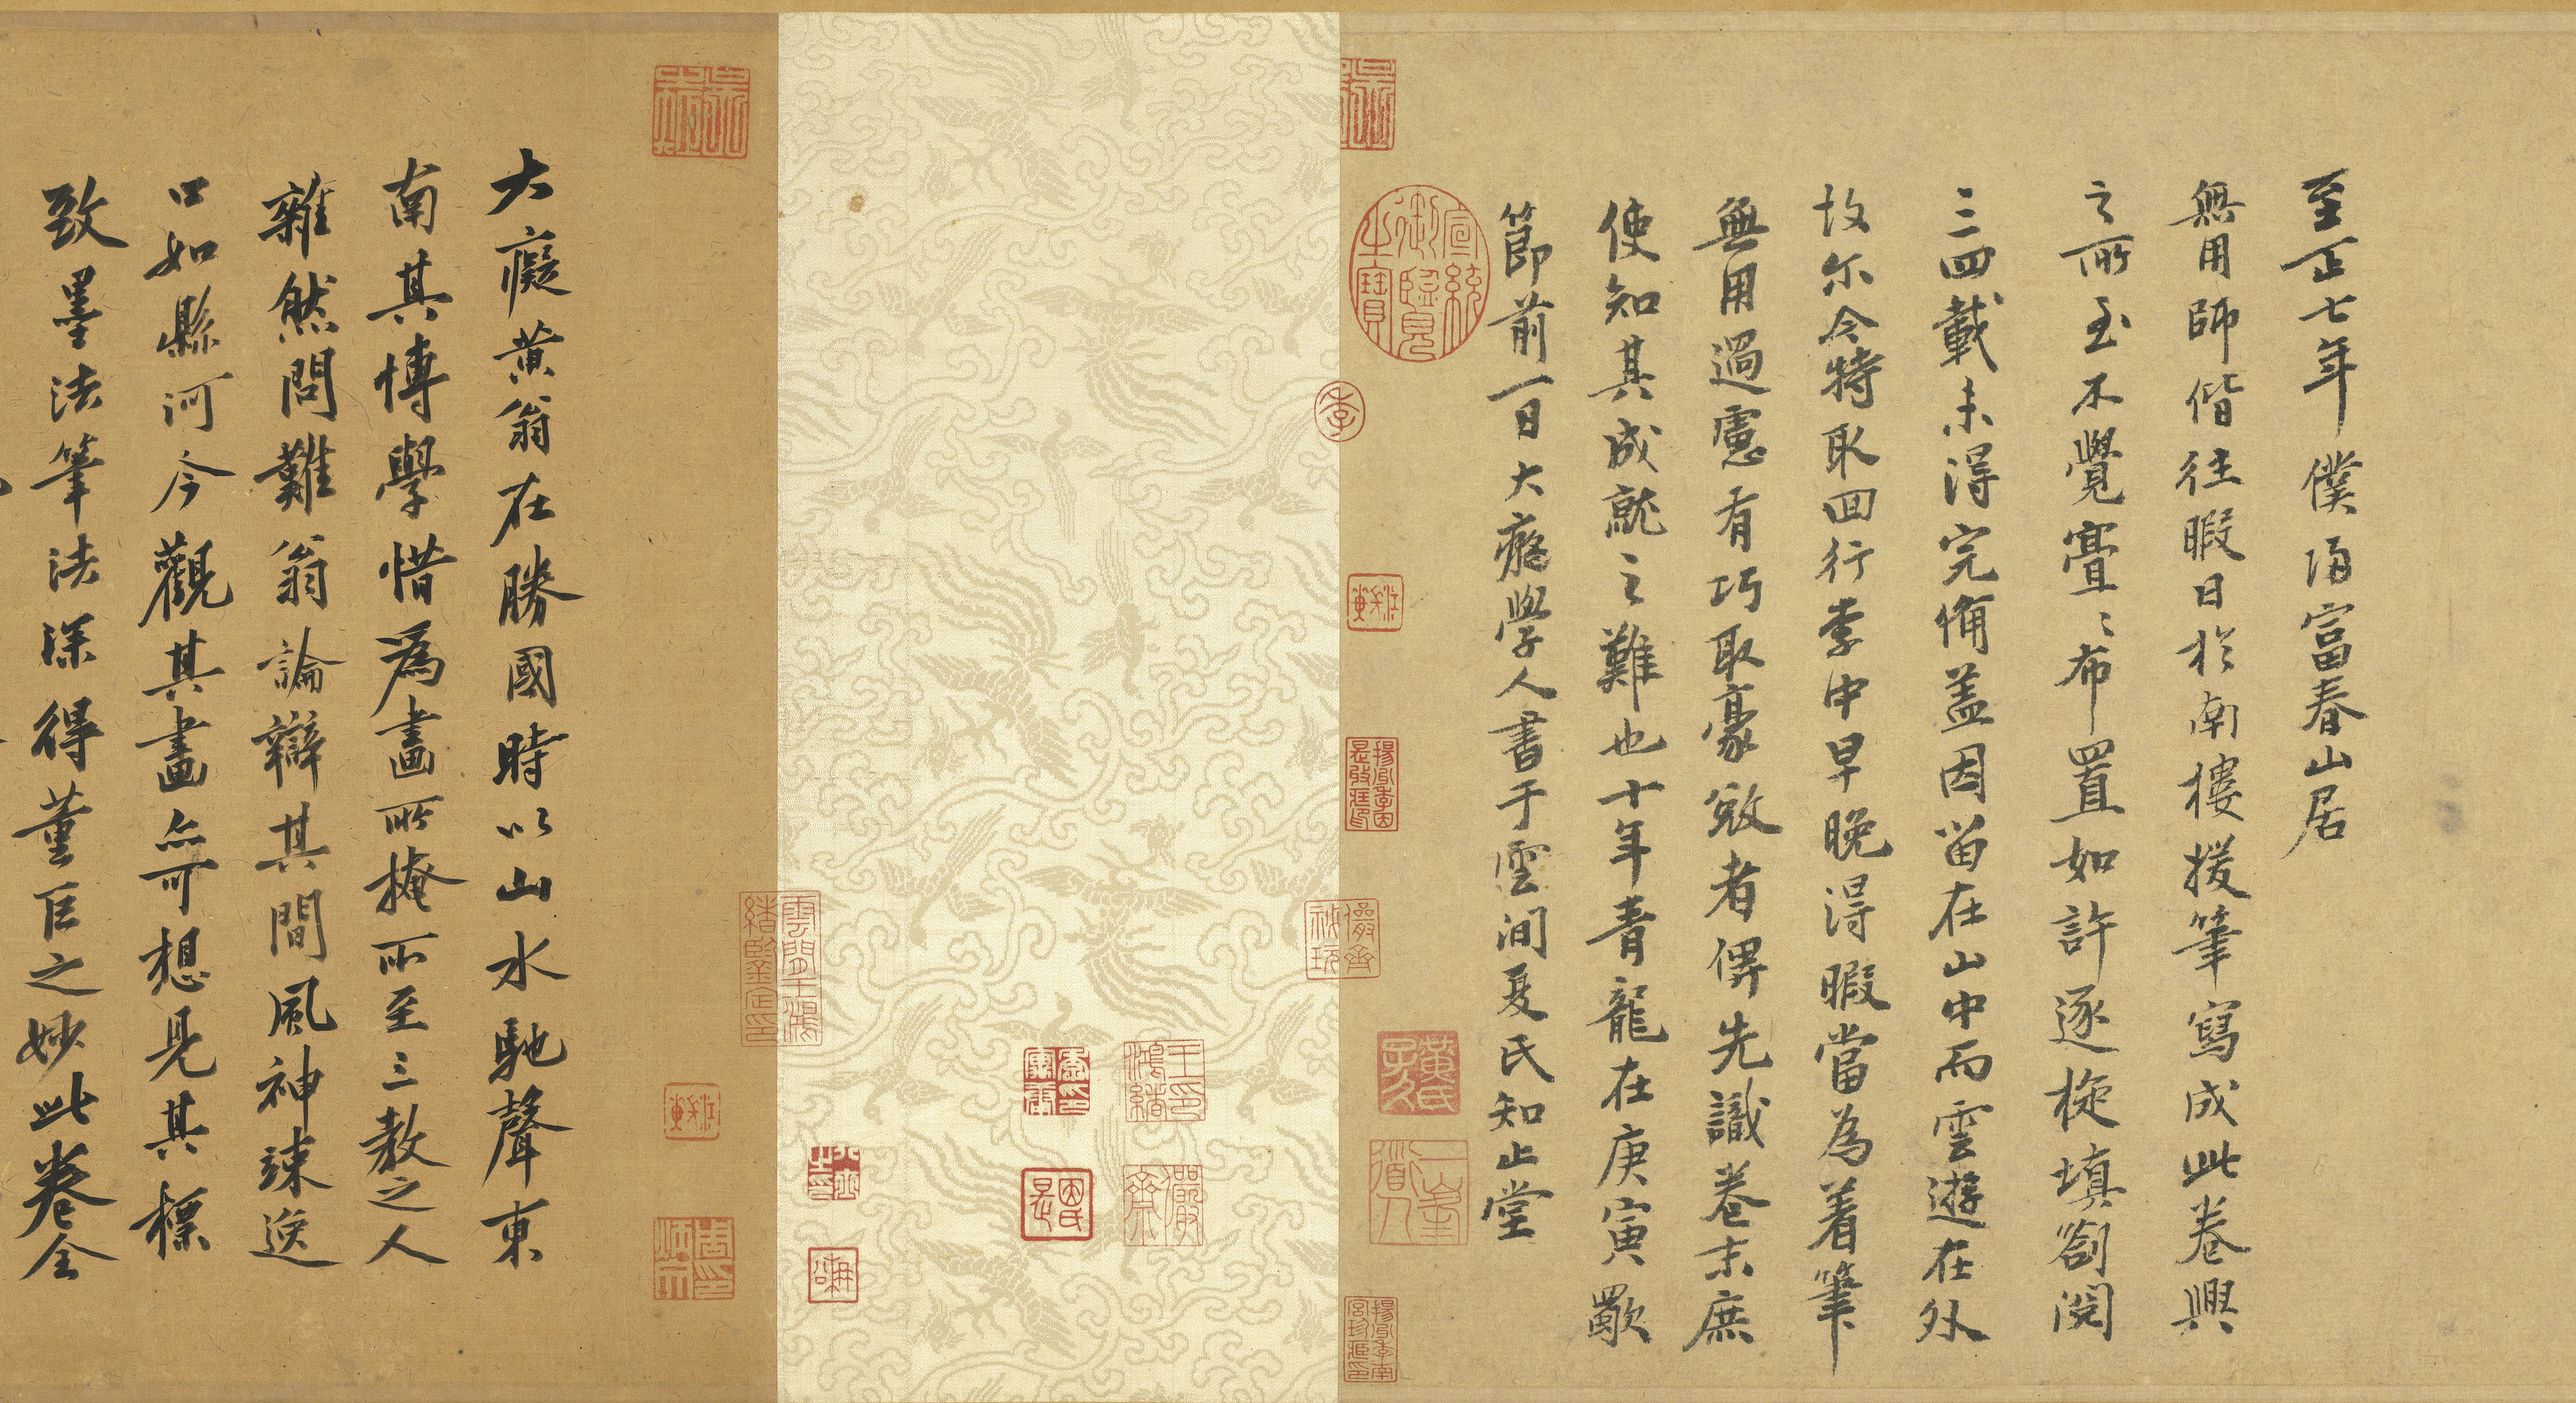 至正七年僕歸富春山居
無用師偕往暇日於南樓援筆寫成此卷興
之所至不覺亹〻布置如許逐旋填劄閱
三四載未得完備盖因留在山中而雲遊在外
故尔今特取回行李中早晚得暇當為着筆
無用過慮有巧取豪敓者俾先識卷末庶
使知其成就之難也十年青龍在庚寅歜
節前一日大癡學人書于雲間夏氏知止堂
宣統御覽之寶
季
儼齋秘玩
黃氏子久
一峯道人
雲間王鴻緒鑒定印
王鴻緒印
儼齋
大癡黃翁在勝國時以山水馳聲東
南其博學惜為畫所掩所至三教之人
雜然問難翁論辯其間風神竦逸
口如懸河今觀其畫亦可想見其標
致墨法筆法深得董巨之妙此卷全